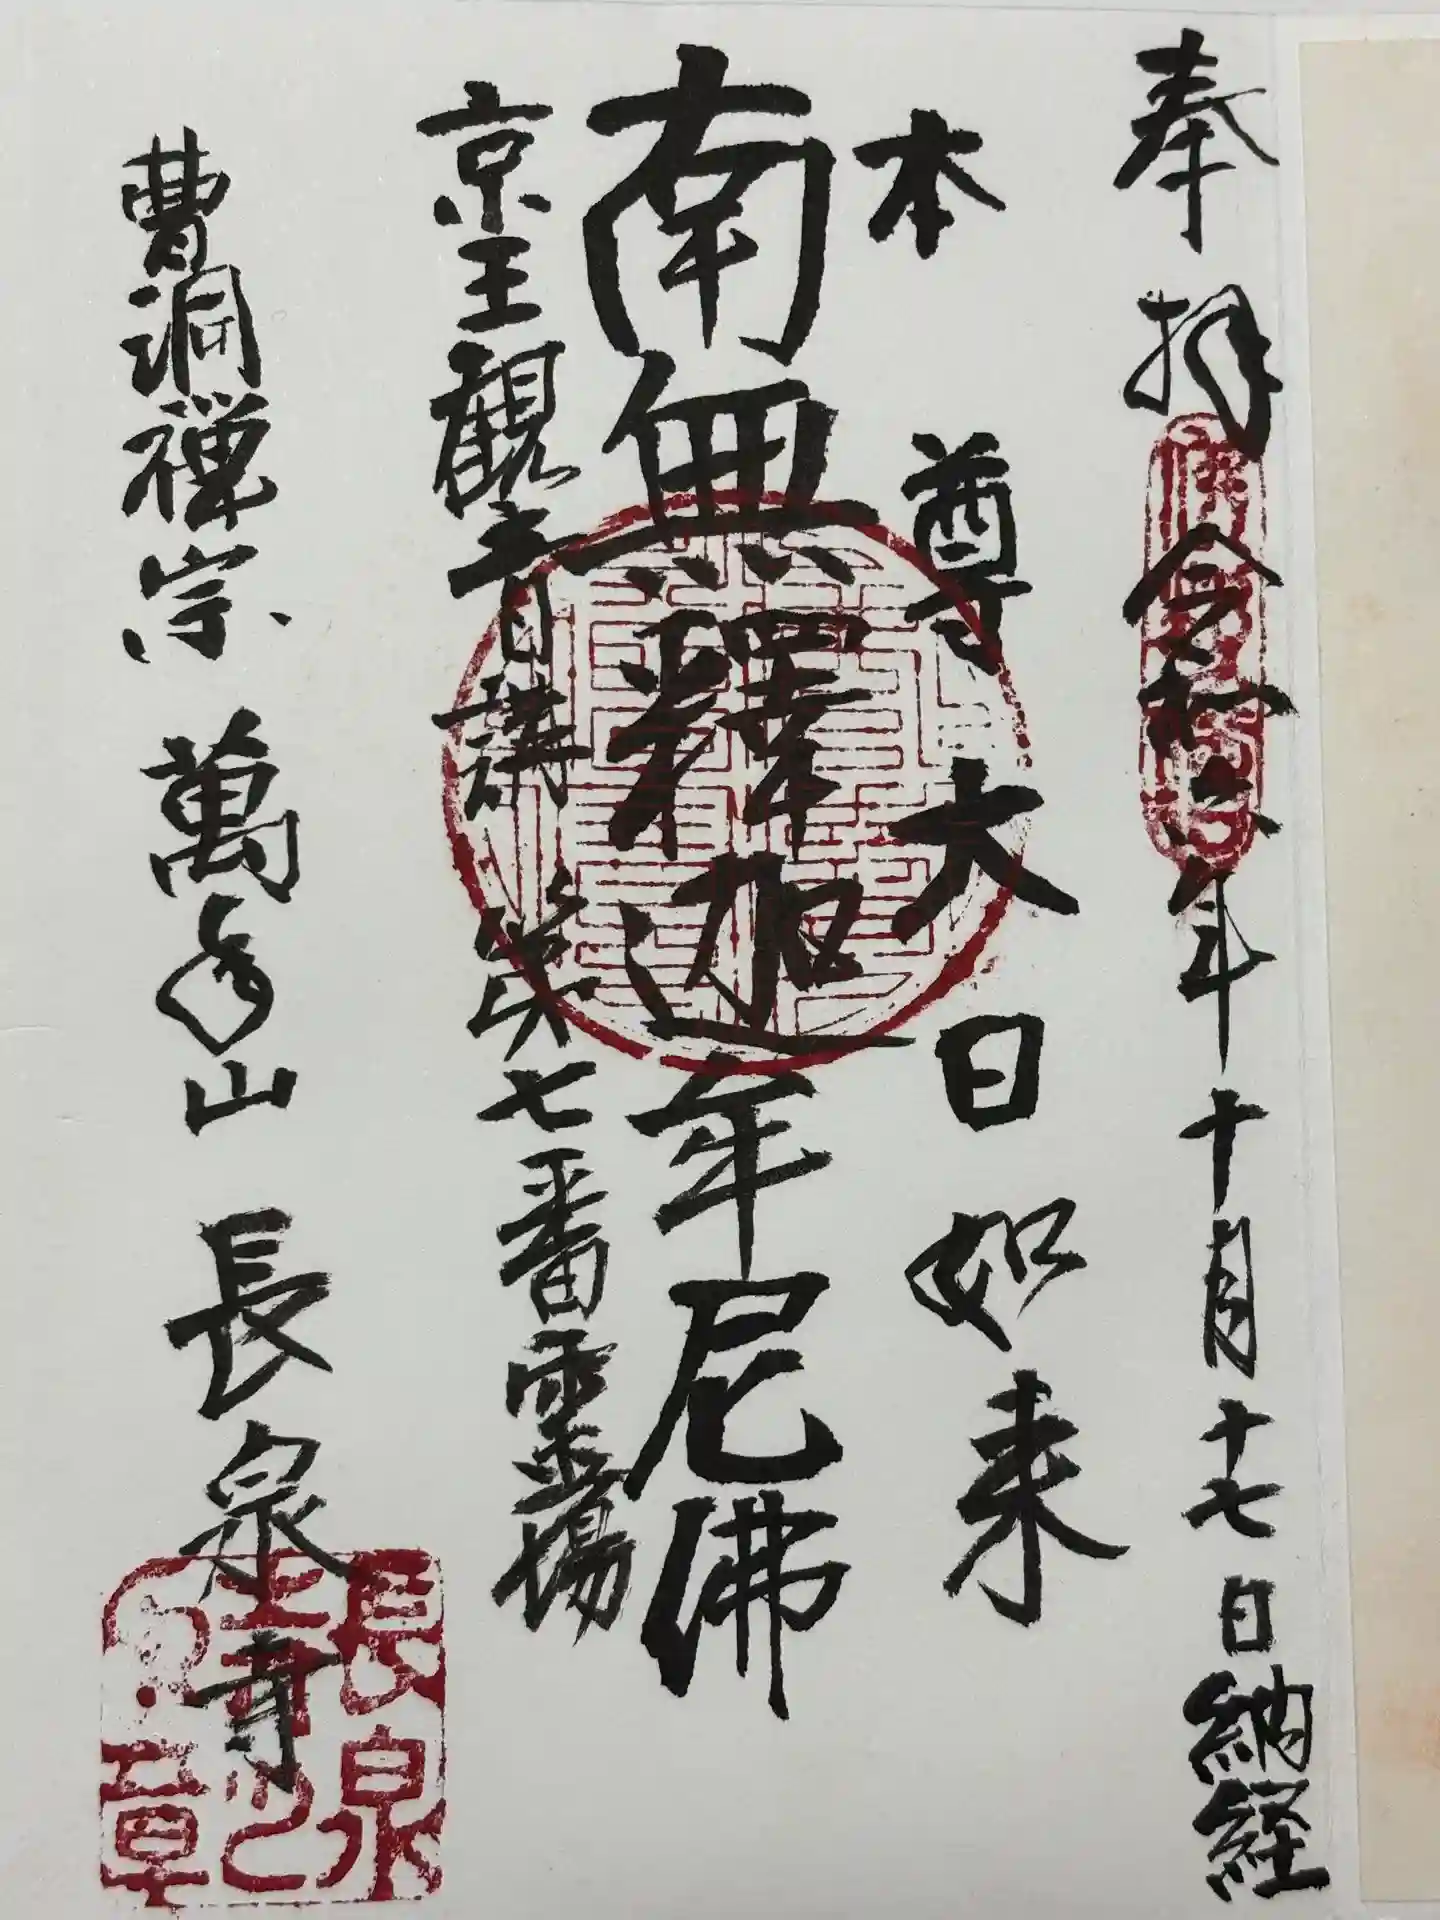 奉拝 令和六年十月十七日 納経
本尊大日如来
南無釋迦牟尼佛
京王観音講 第七番霊場
曹洞禅宗 萬 山 長泉寺
長泉
章